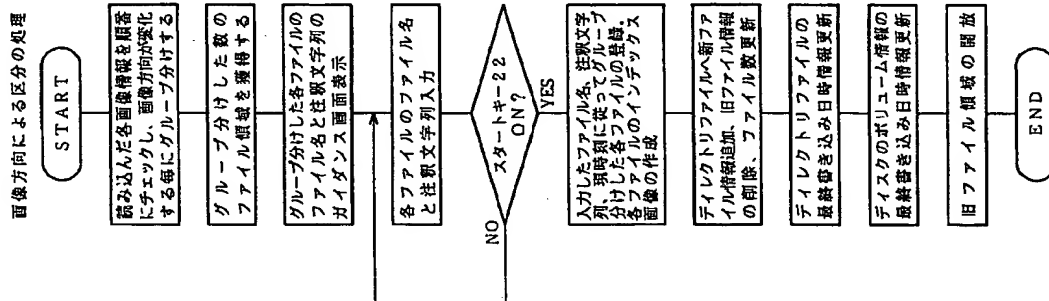 画像方向による区分の処理
START
読み込んだ各画像情報を順番
にチェックし、画像方向が変化
する毎にグループ分けする
グループ分けした数の
ファイル領域を獲得する
グループ分けした各ファイルの
ファイル名と注釈文字列の
ガイダンス画面表示
各ファイルのファイル名
と注釈文字列入力
スタートキー22
ON?
NO
YES
入力したファイル名、注釈文字
列、現時刻に従ってグループ
分けした各ファイルの登録。
各ファイルのインデックス
画像の作成
ディレクトリファイルへ新ファ
イル情報追加、旧ファイル情報
の削除、ファイル数更新
ディレクトリファイルの
最終書き込み日時情報更新
ディスクのボリューム情報の
最終書き込み日時情報更新
旧ファイル領域の開放
END